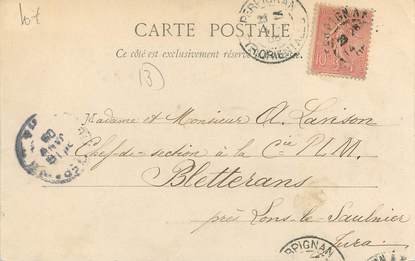 107
CARTE POSTALE
Ce côté est exclusivement réservé
PERPIGNAN
PERPIGNAN
10
13
Madame et Monsieur A. Lanson
Chef-de-section à la Cie P.L.M.
Bletterans
près Lons-le-Saulnier
Jura.
PERPIGNAN